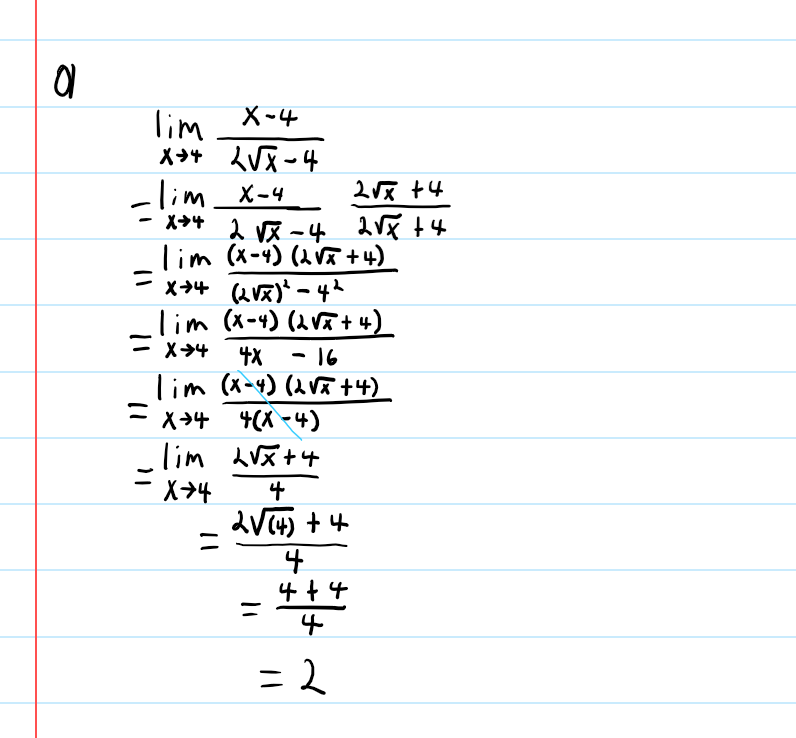 a
lim x→4 (x-4)/(2√x - 4)
= lim x→4 (x-4)/(2√x - 4) (2√x + 4)/(2√x + 4)
= lim x→4 ((x-4)(2√x + 4))/((2√x)² - 4²)
= lim x→4 ((x-4)(2√x + 4))/(4x - 16)
= lim x→4 ((x-4)(2√x + 4))/(4(x-4))
= lim x→4 (2√x + 4)/4
= (2√(4) + 4)/4
= (4 + 4)/4
= 2